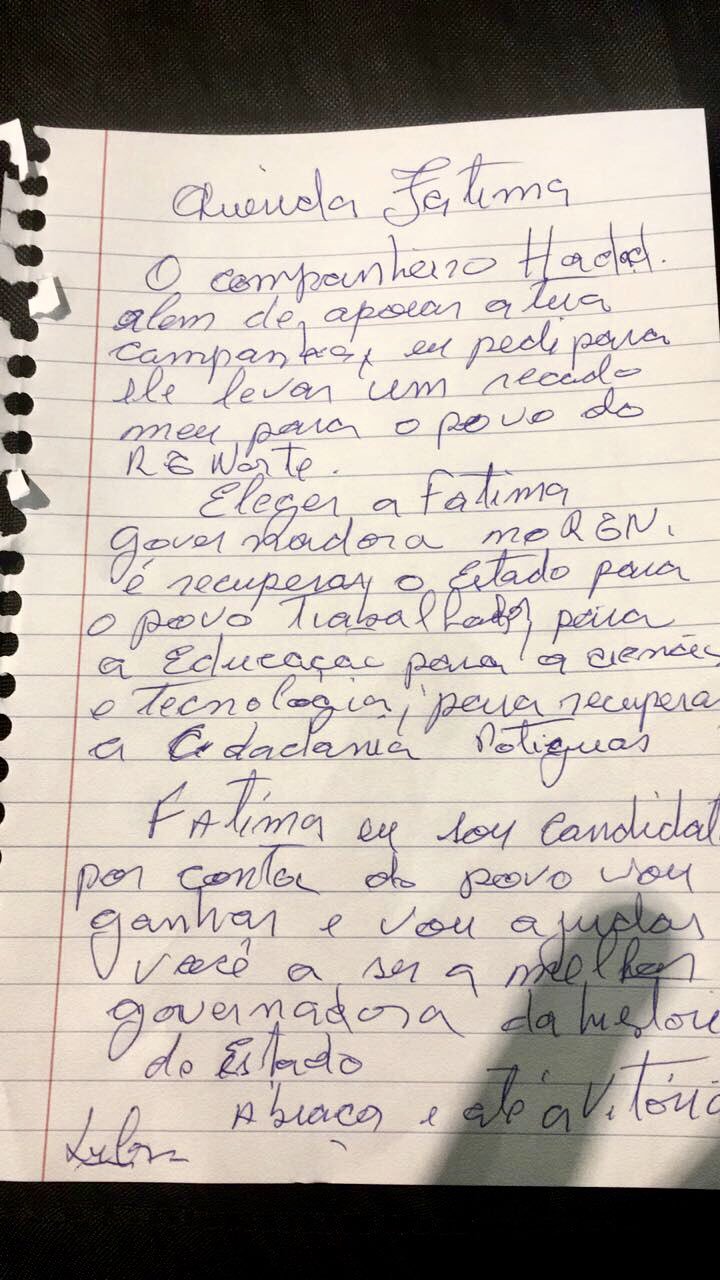 Querida Fatima
O companheiro Hadad.
alem de, apoiar a tua
campanha, eu pedi para
ele levar um recado
meu para o povo do
RG Norte.
Eleger a Fatima
governadora no RGN.
é recuperar o Estado para
o povo Trabalhador, para
a Educação para a ciencia
e tecnologia, para recupera
a Cidadania Potiguar
FAtima eu sou candidat
por conta do povo vou
ganhar e vou ajudar
você a ser a melhor
governadora da histori
do Estado
Abraço e até a Vitória
Lula